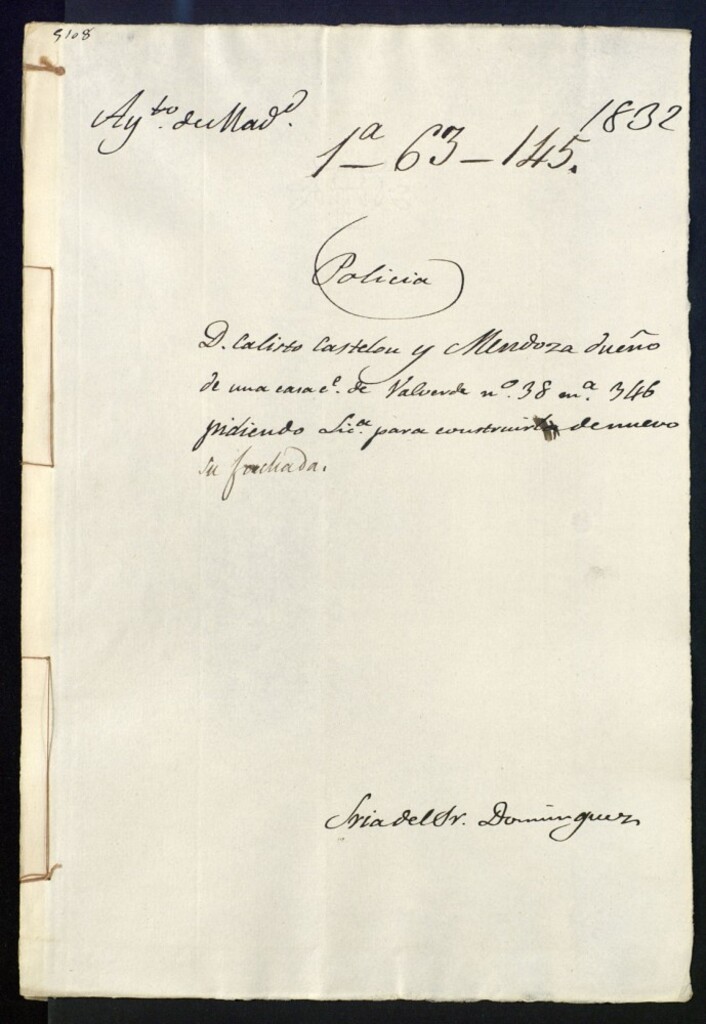 5108
Ay.to de Mad.d 1832
1ª - 63 - 145.
Policia
D. Calisto Castelou y Mendoza dueño
de una casa c.e de Valverde nº. 38 m.ª 346
pidiendo Lic.ª para construir de nuevo
su fachada.
Sria del Sr. Dominguez